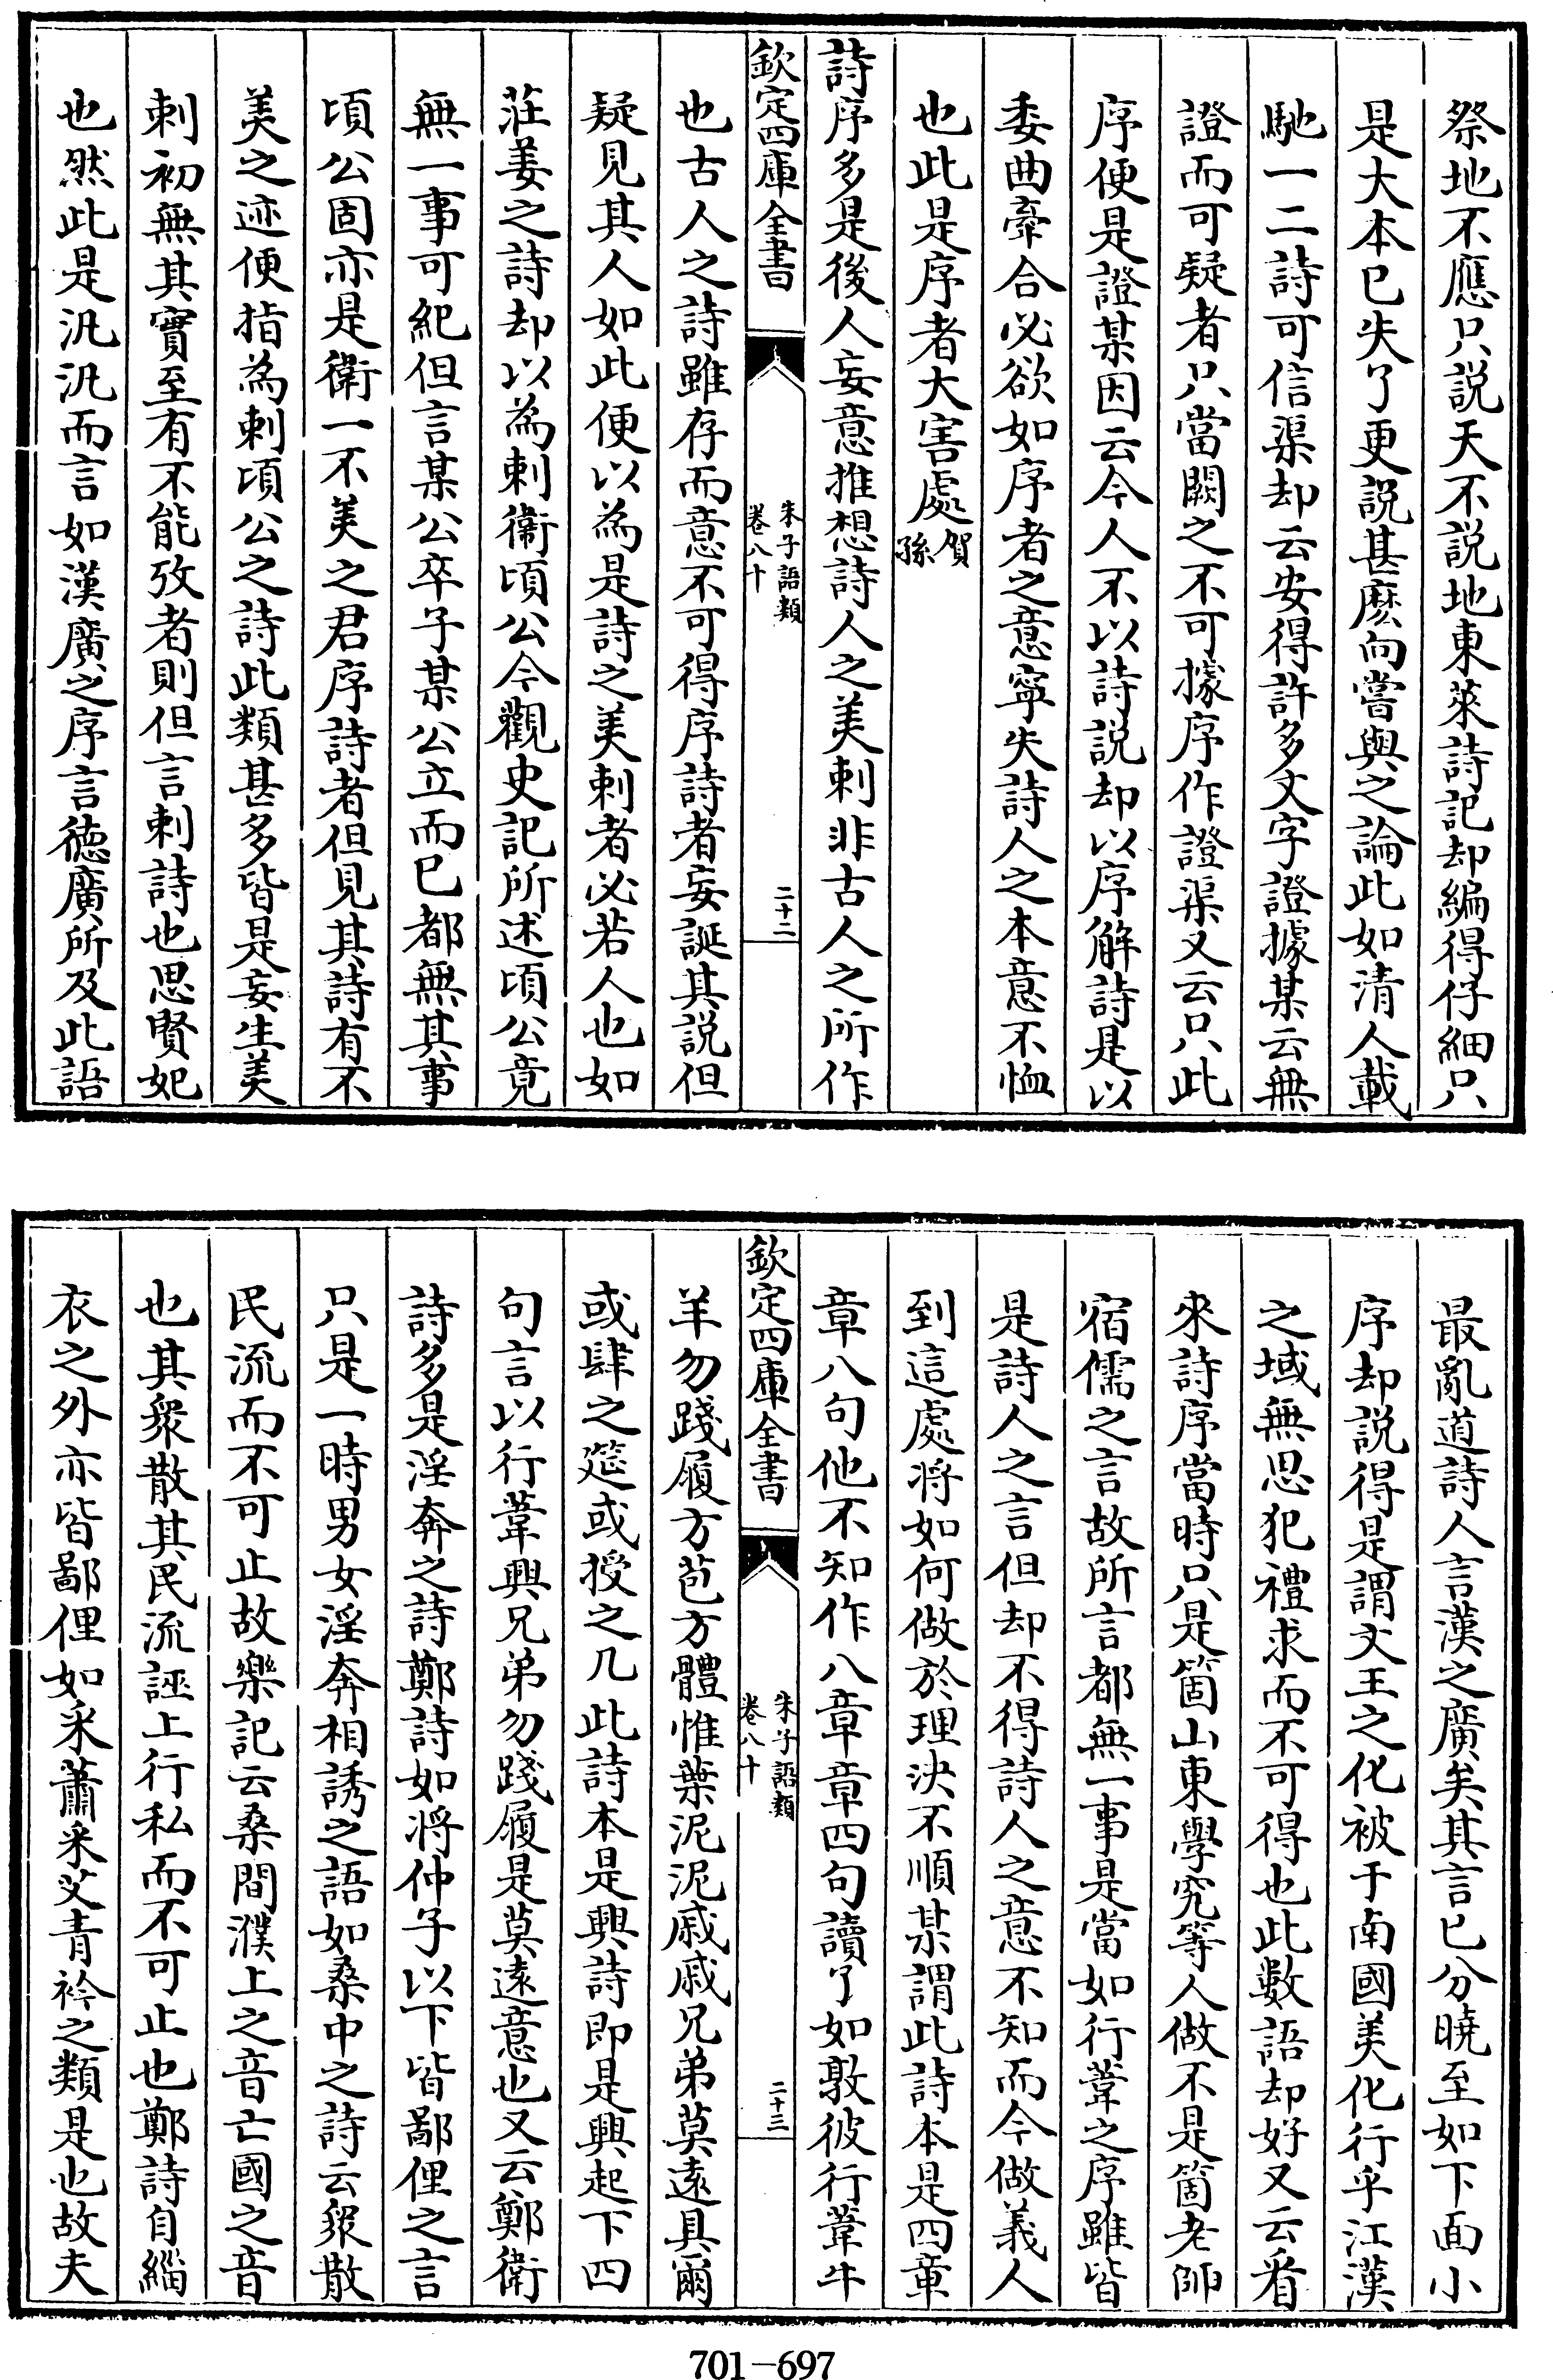 祭地不應只説天不説地東萊詩記却編得仔細只
是大本已失了更説甚麽向嘗與之論此如清人載
馳一二詩可信渠却云安得許多文字證據某云無
證而可疑者只當闕之不可據序作證渠又云只此
序便是證某因云今人不以詩説却以序解詩是以
委曲牽合必欲如序者之意寧失詩人之本意不恤
也此是序者大害處賀孫
詩序多是後人妄意推想詩人之美刺非古人之所作
欽定四庫全書
朱子語類
卷八十
二十二
也古人之詩雖存而意不可得序詩者妄誕其説但
疑見其人如此便以為是詩之美刺者必若人也如
莊姜之詩却以為刺衞頃公今觀史記所述頃公竟
無一事可紀但言某公卒子某公立而已都無其事
頃公固亦是衞一不美之君序詩者但見其詩有不
美之迹便指為刺頃公之詩此類甚多皆是妄生美
刺初無其實至有不能攷者則但言刺詩也思賢妃
也然此是汎汎而言如漢廣之序言德廣所及此語
最亂道詩人言漢之廣矣其言已分曉至如下面小
序却説得是謂文王之化被于南國美化行乎江漢
之域無思犯禮求而不可得也此數語却好又云看
來詩序當時只是箇山東學究等人做不是箇老師
宿儒之言故所言都無一事是當如行葦之序雖皆
是詩人之言但却不得詩人之意不知而今做義人
到這處將如何做於理決不順某謂此詩本是四章
章八句他不知作八章章四句讀了如敦彼行葦牛
欽定四庫全書
朱子語類
卷八十
二十三
羊勿踐履方苞方體惟葉泥泥戚戚兄弟莫遠具爾
或肆之筵或授之几此詩本是興詩即是興起下四
句言以行葦興兄弟勿踐履是莫遠意也又云鄭衞
詩多是淫奔之詩鄭詩如將仲子以下皆鄙俚之言
只是一時男女淫奔相誘之語如桑中之詩云衆散
民流而不可止故樂記云桑間濮上之音亡國之音
也其衆散其民流誣上行私而不可止也鄭詩自緇
衣之外亦皆鄙俚如采蕭采艾青衿之類是也故夫
701-697